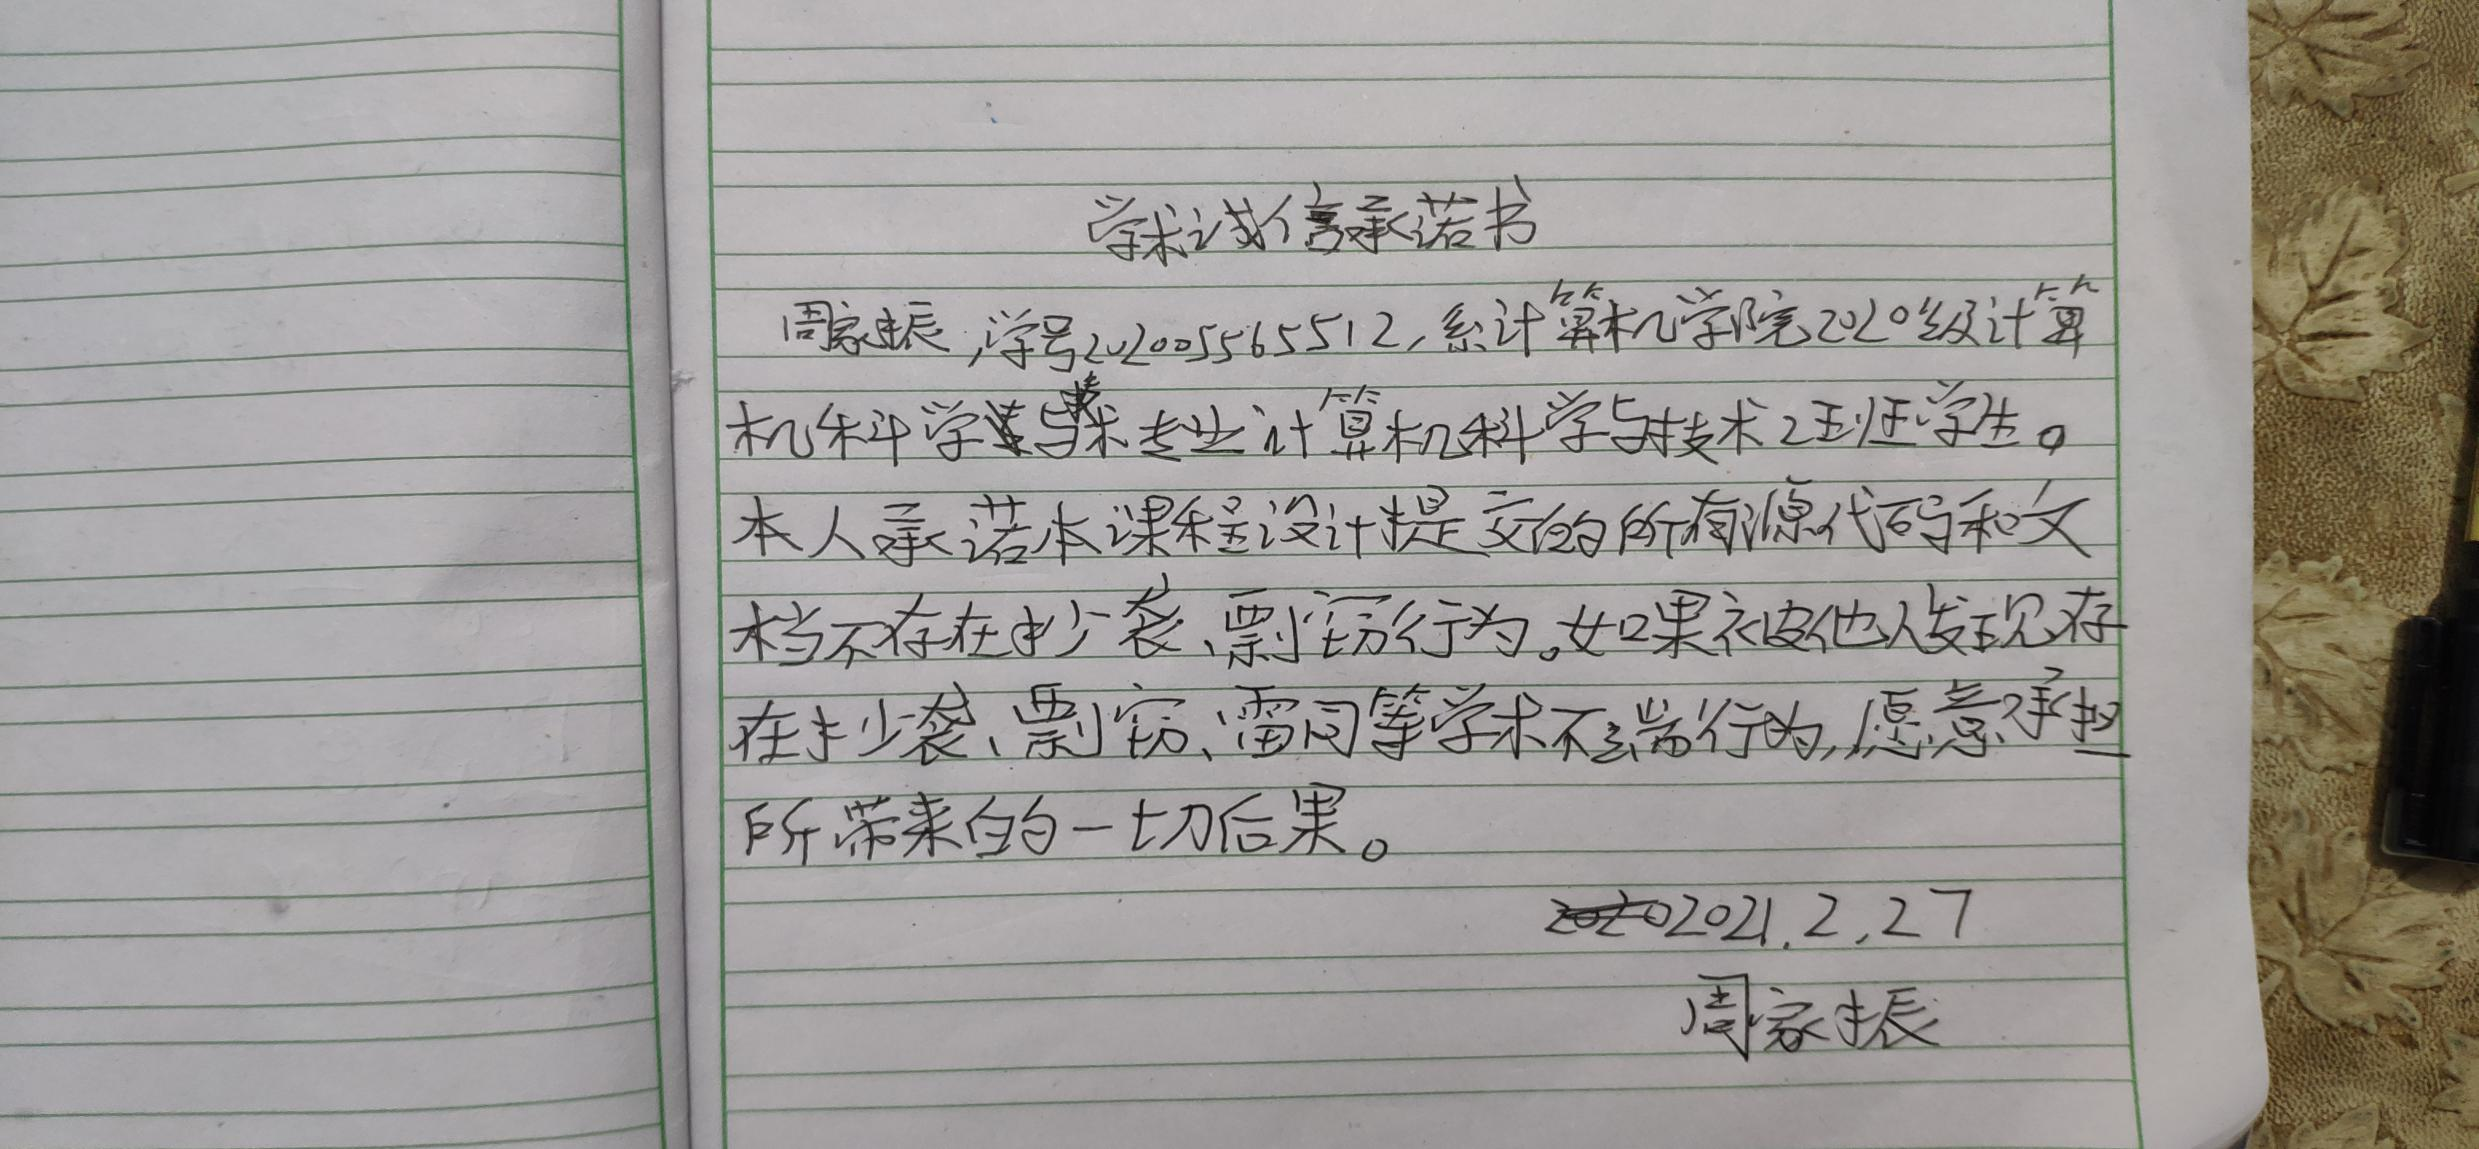 学术诚信承诺书
周家振,学号2020055565512,系计算机学院2020级计算
机科学与技术专业计算机科学与技术2班学生。
本人承诺本课程设计提交的所有源代码和文
档不存在抄袭、剽窃行为。如果被他人发现存
在抄袭、剽窃、雷同等学术不端行为,愿意承担
所带来的一切后果。
2021.2.27
周家振